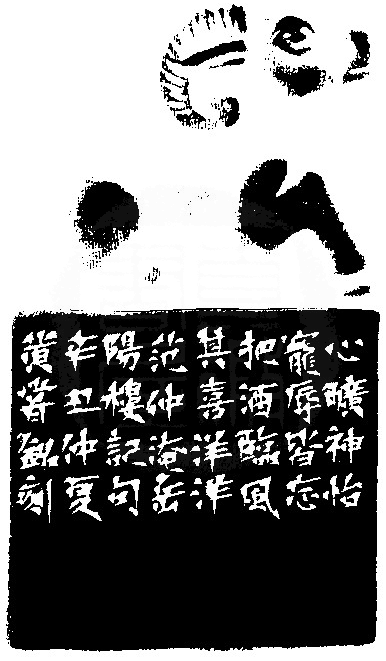 心曠神怡
寵辱皆忘
把酒臨風
其喜洋洋
范仲淹岳
陽樓記句
辛丑仲夏
黃銘刻